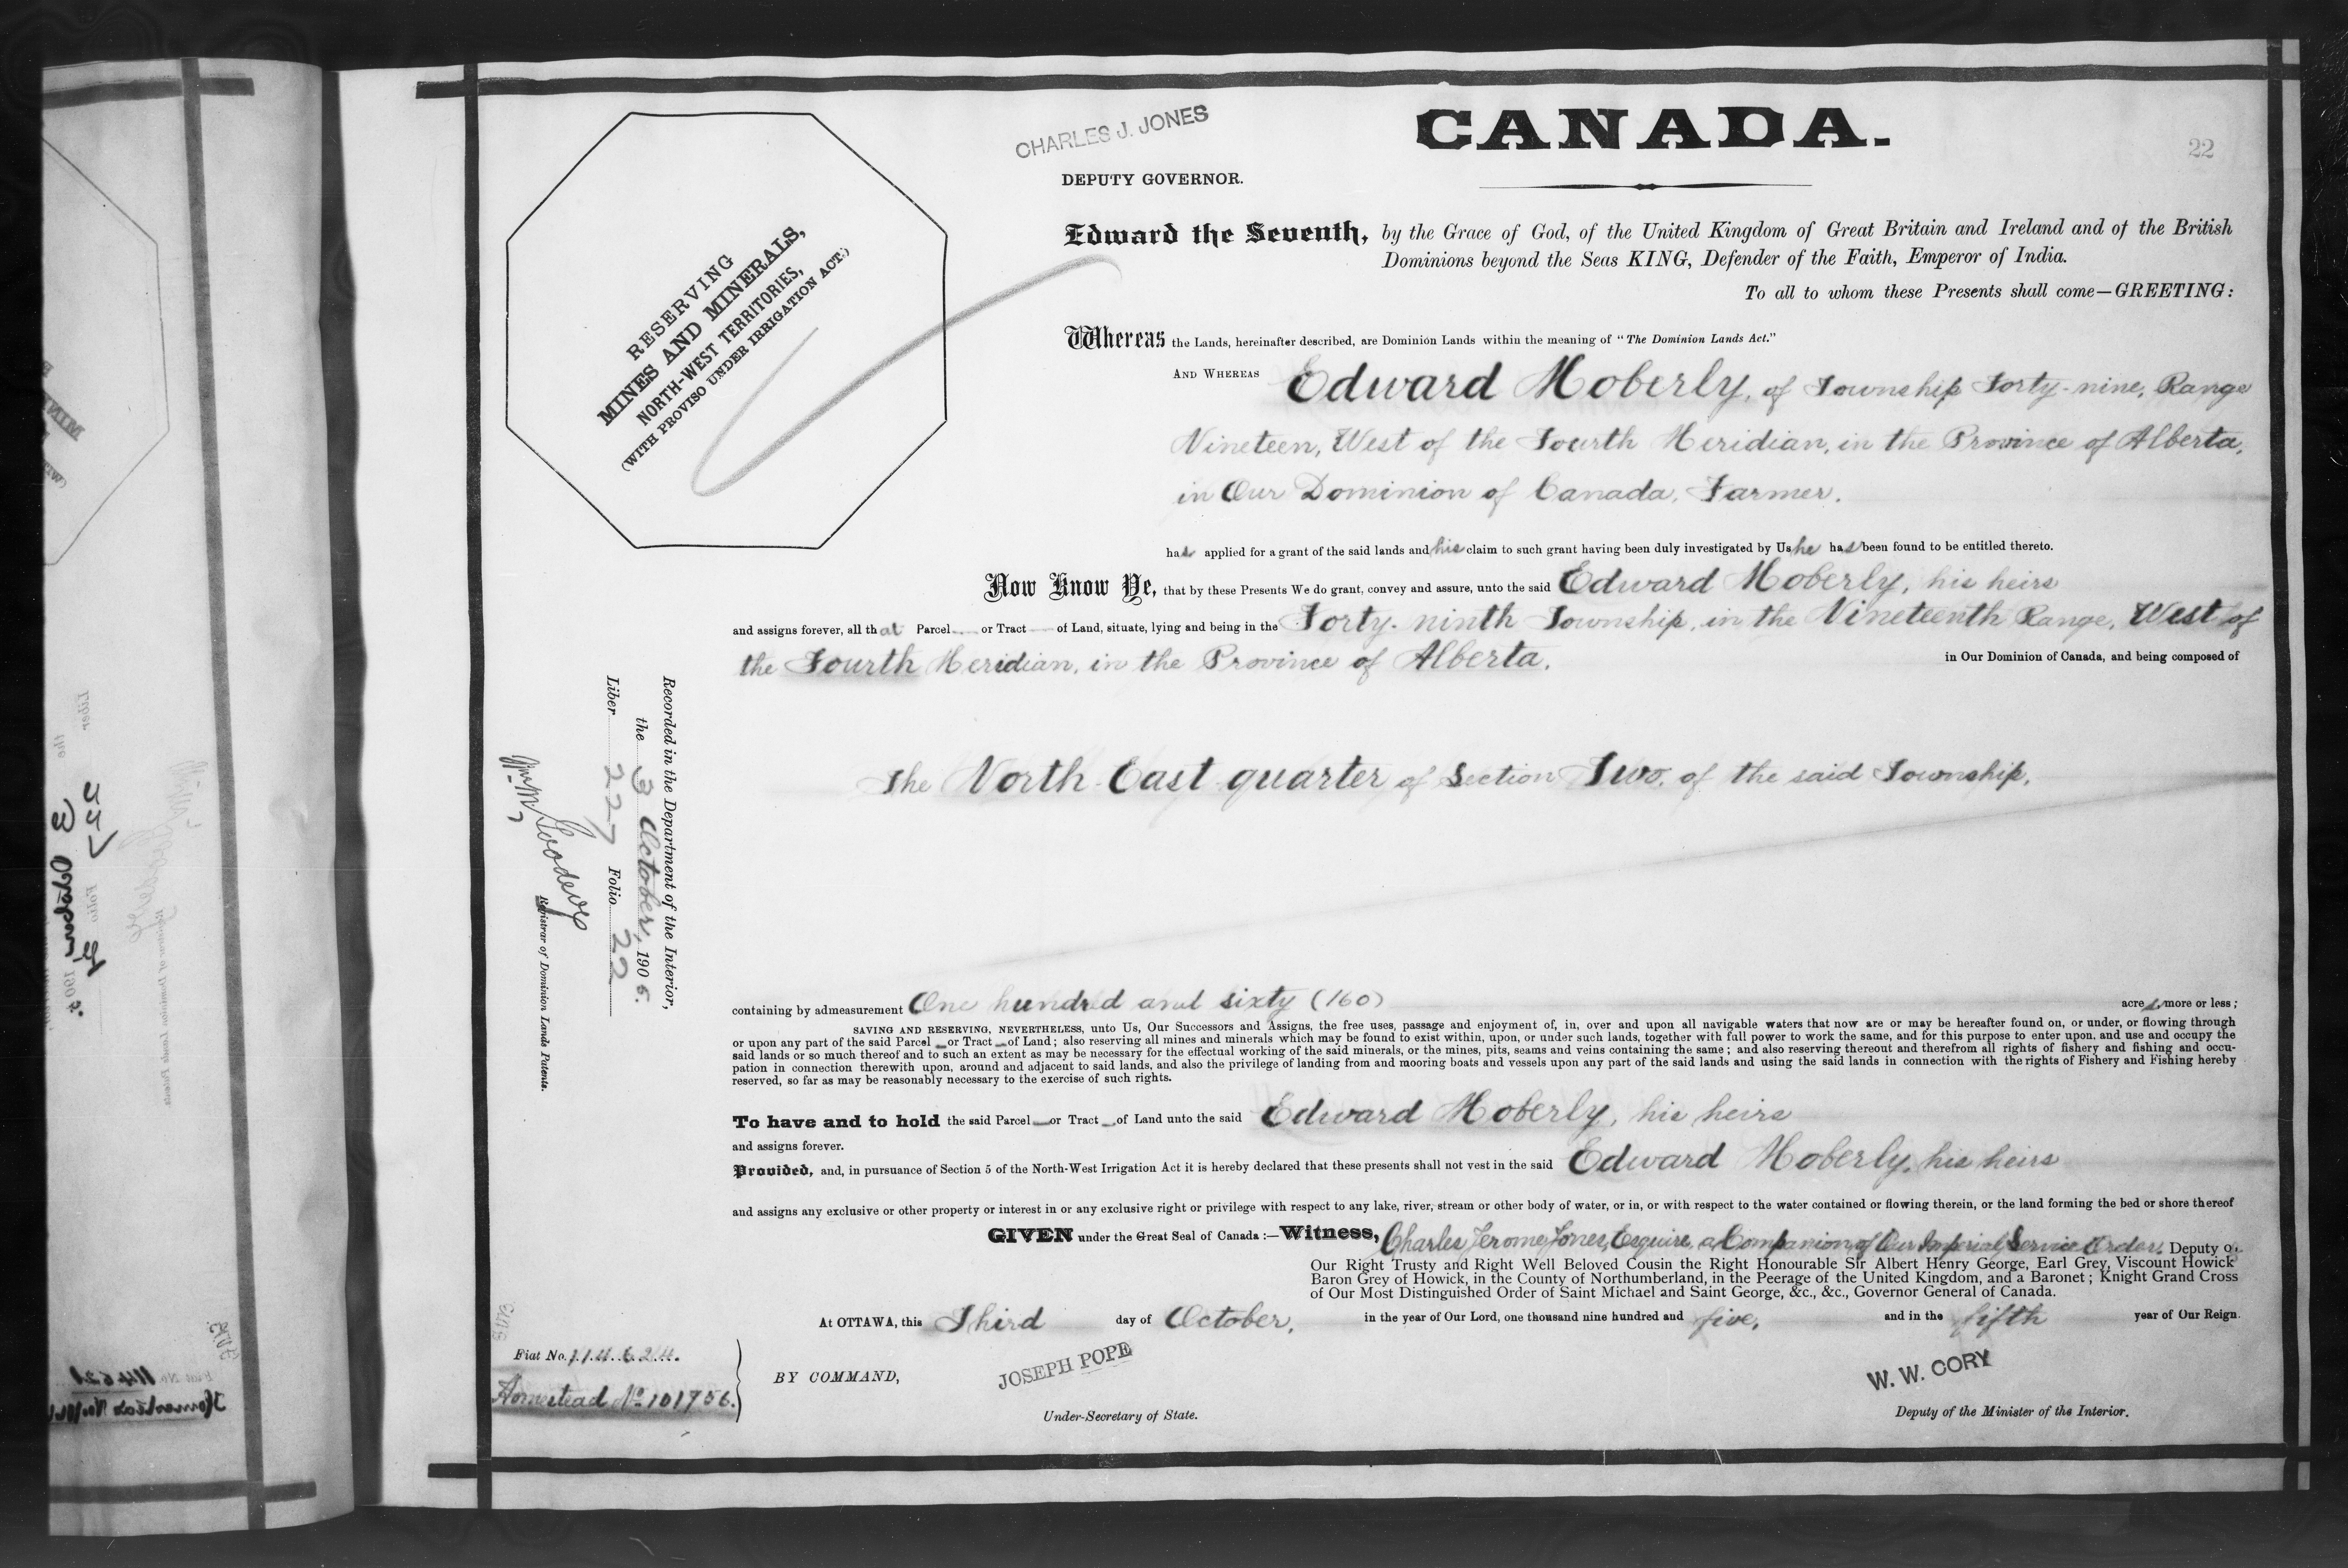 CHARLES J. JONES
CANADA.
22
DEPUTY GOVERNOR.
RESERVING
MINES AND MINERALS,
NORTH-WEST TERRITORIES,
(WITH PROVISO UNDER IRRIGATION ACT.)
Edward the Seventh, by the Grace of God, of the United Kingdom of Great Britain and Ireland and of the British
Dominions beyond the Seas KING, Defender of the Faith, Emperor of India.
To all to whom these Presents shall come—GREETING:
Whereas the Lands, hereinafter described, are Dominion Lands within the meaning of "The Dominion Lands Act."
AND WHEREAS Edward Moberly, of Township Forty-nine, Range
Nineteen, West of the Fourth Meridian, in the Province of Alberta,
in Our Dominion of Canada, Farmer.
has applied for a grant of the said lands and his claim to such grant having been duly investigated by Us he has been found to be entitled thereto.
Now Know Ye, that by these Presents We do grant, convey and assure, unto the said Edward Moberly, his heirs
and assigns forever, all that Parcel or Tract of Land, situate, lying and being in the Forty-ninth Township, in the Nineteenth Range, West of
the Fourth Meridian, in the Province of Alberta, in Our Dominion of Canada, and being composed of
The North East quarter of Section Two, of the said Township,
Recorded in the Department of the Interior,
the 3 October, 1905.
Liber 227 Folio 22
Registrar of Dominion Lands Patents.
containing by admeasurement One hundred and sixty (160) acres, more or less;
SAVING AND RESERVING, NEVERTHELESS, unto Us, Our Successors and Assigns, the free uses, passage and enjoyment of, in, over and upon all navigable waters that now are or may be hereafter found on, or under, or flowing through
or upon any part of the said Parcel or Tract of Land; also reserving all mines and minerals which may be found to exist within, upon, or under such lands, together with full power to work the same, and for this purpose to enter upon, and use and occupy the
said lands or so much thereof and to such an extent as may be necessary for the effectual working of the said minerals, or the mines, pits, seams and veins containing the same; and also reserving thereout and therefrom all rights of fishery and fishing and occu-
pation in connection therewith upon, around and adjacent to said lands, and also the privilege of landing from and mooring boats and vessels upon any part of the said lands and using the said lands in connection with the rights of Fishery and Fishing hereby
reserved, so far as may be reasonably necessary to the exercise of such rights.
To have and to hold the said Parcel or Tract of Land unto the said Edward Moberly, his heirs
and assigns forever.
Provided, and, in pursuance of Section 5 of the North-West Irrigation Act it is hereby declared that these presents shall not vest in the said Edward Moberly, his heirs
and assigns any exclusive or other property or interest in or any exclusive right or privilege with respect to any lake, river, stream or other body of water, or in, or with respect to the water contained or flowing therein, or the land forming the bed or shore thereof
GIVEN under the Great Seal of Canada:—Witness, Charles Jerome Jones, Esquire, a Companion of Our Imperial Service Order. Deputy of
Our Right Trusty and Right Well Beloved Cousin the Right Honourable Sir Albert Henry George, Earl Grey, Viscount Howick
Baron Grey of Howick, in the County of Northumberland, in the Peerage of the United Kingdom, and a Baronet; Knight Grand Cross
of Our Most Distinguished Order of Saint Michael and Saint George, &c., &c., Governor General of Canada.
At OTTAWA, this Third day of October, in the year of Our Lord, one thousand nine hundred and five, and in the fifth year of Our Reign.
Fiat No. 114624.
Homestead No 101756.
BY COMMAND,
JOSEPH POPE
Under-Secretary of State.
W. W. CORY
Deputy of the Minister of the Interior.